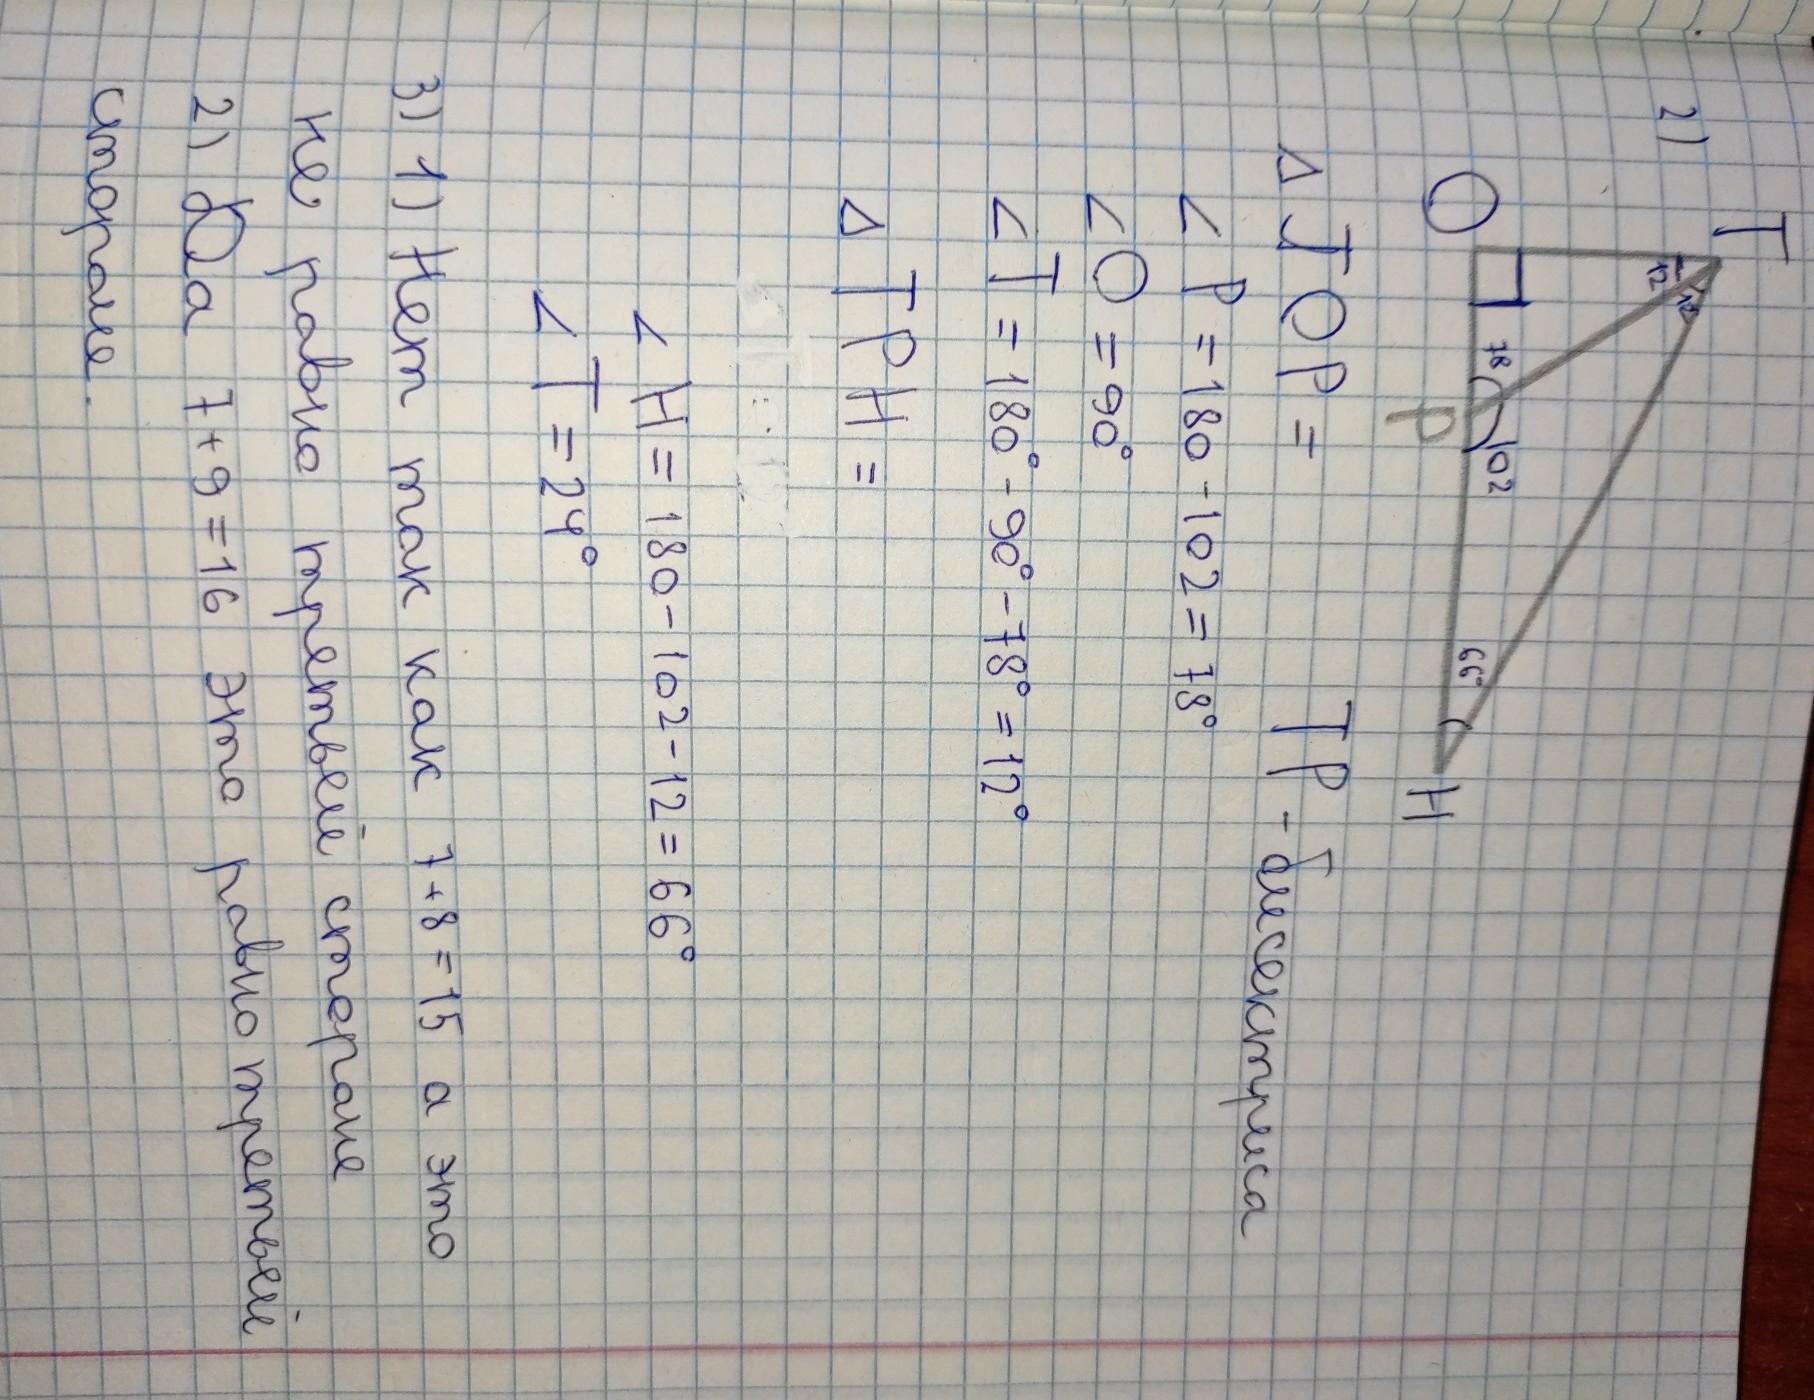 2)
T
12 12
O 78 102 66° H
P
△ TOP = TP - биссектриса
∠ P = 180 - 102 = 78°
∠ O = 90°
∠ T = 180° - 90° - 78° = 12°
△ TPH =
∠ H = 180 - 102 - 12 = 66°
∠ T = 24°
3) 1) Нет так как 7 + 8 = 15 а это
не равно третьей стороне
2) Да 7 + 9 = 16 это равно третьей
стороне.